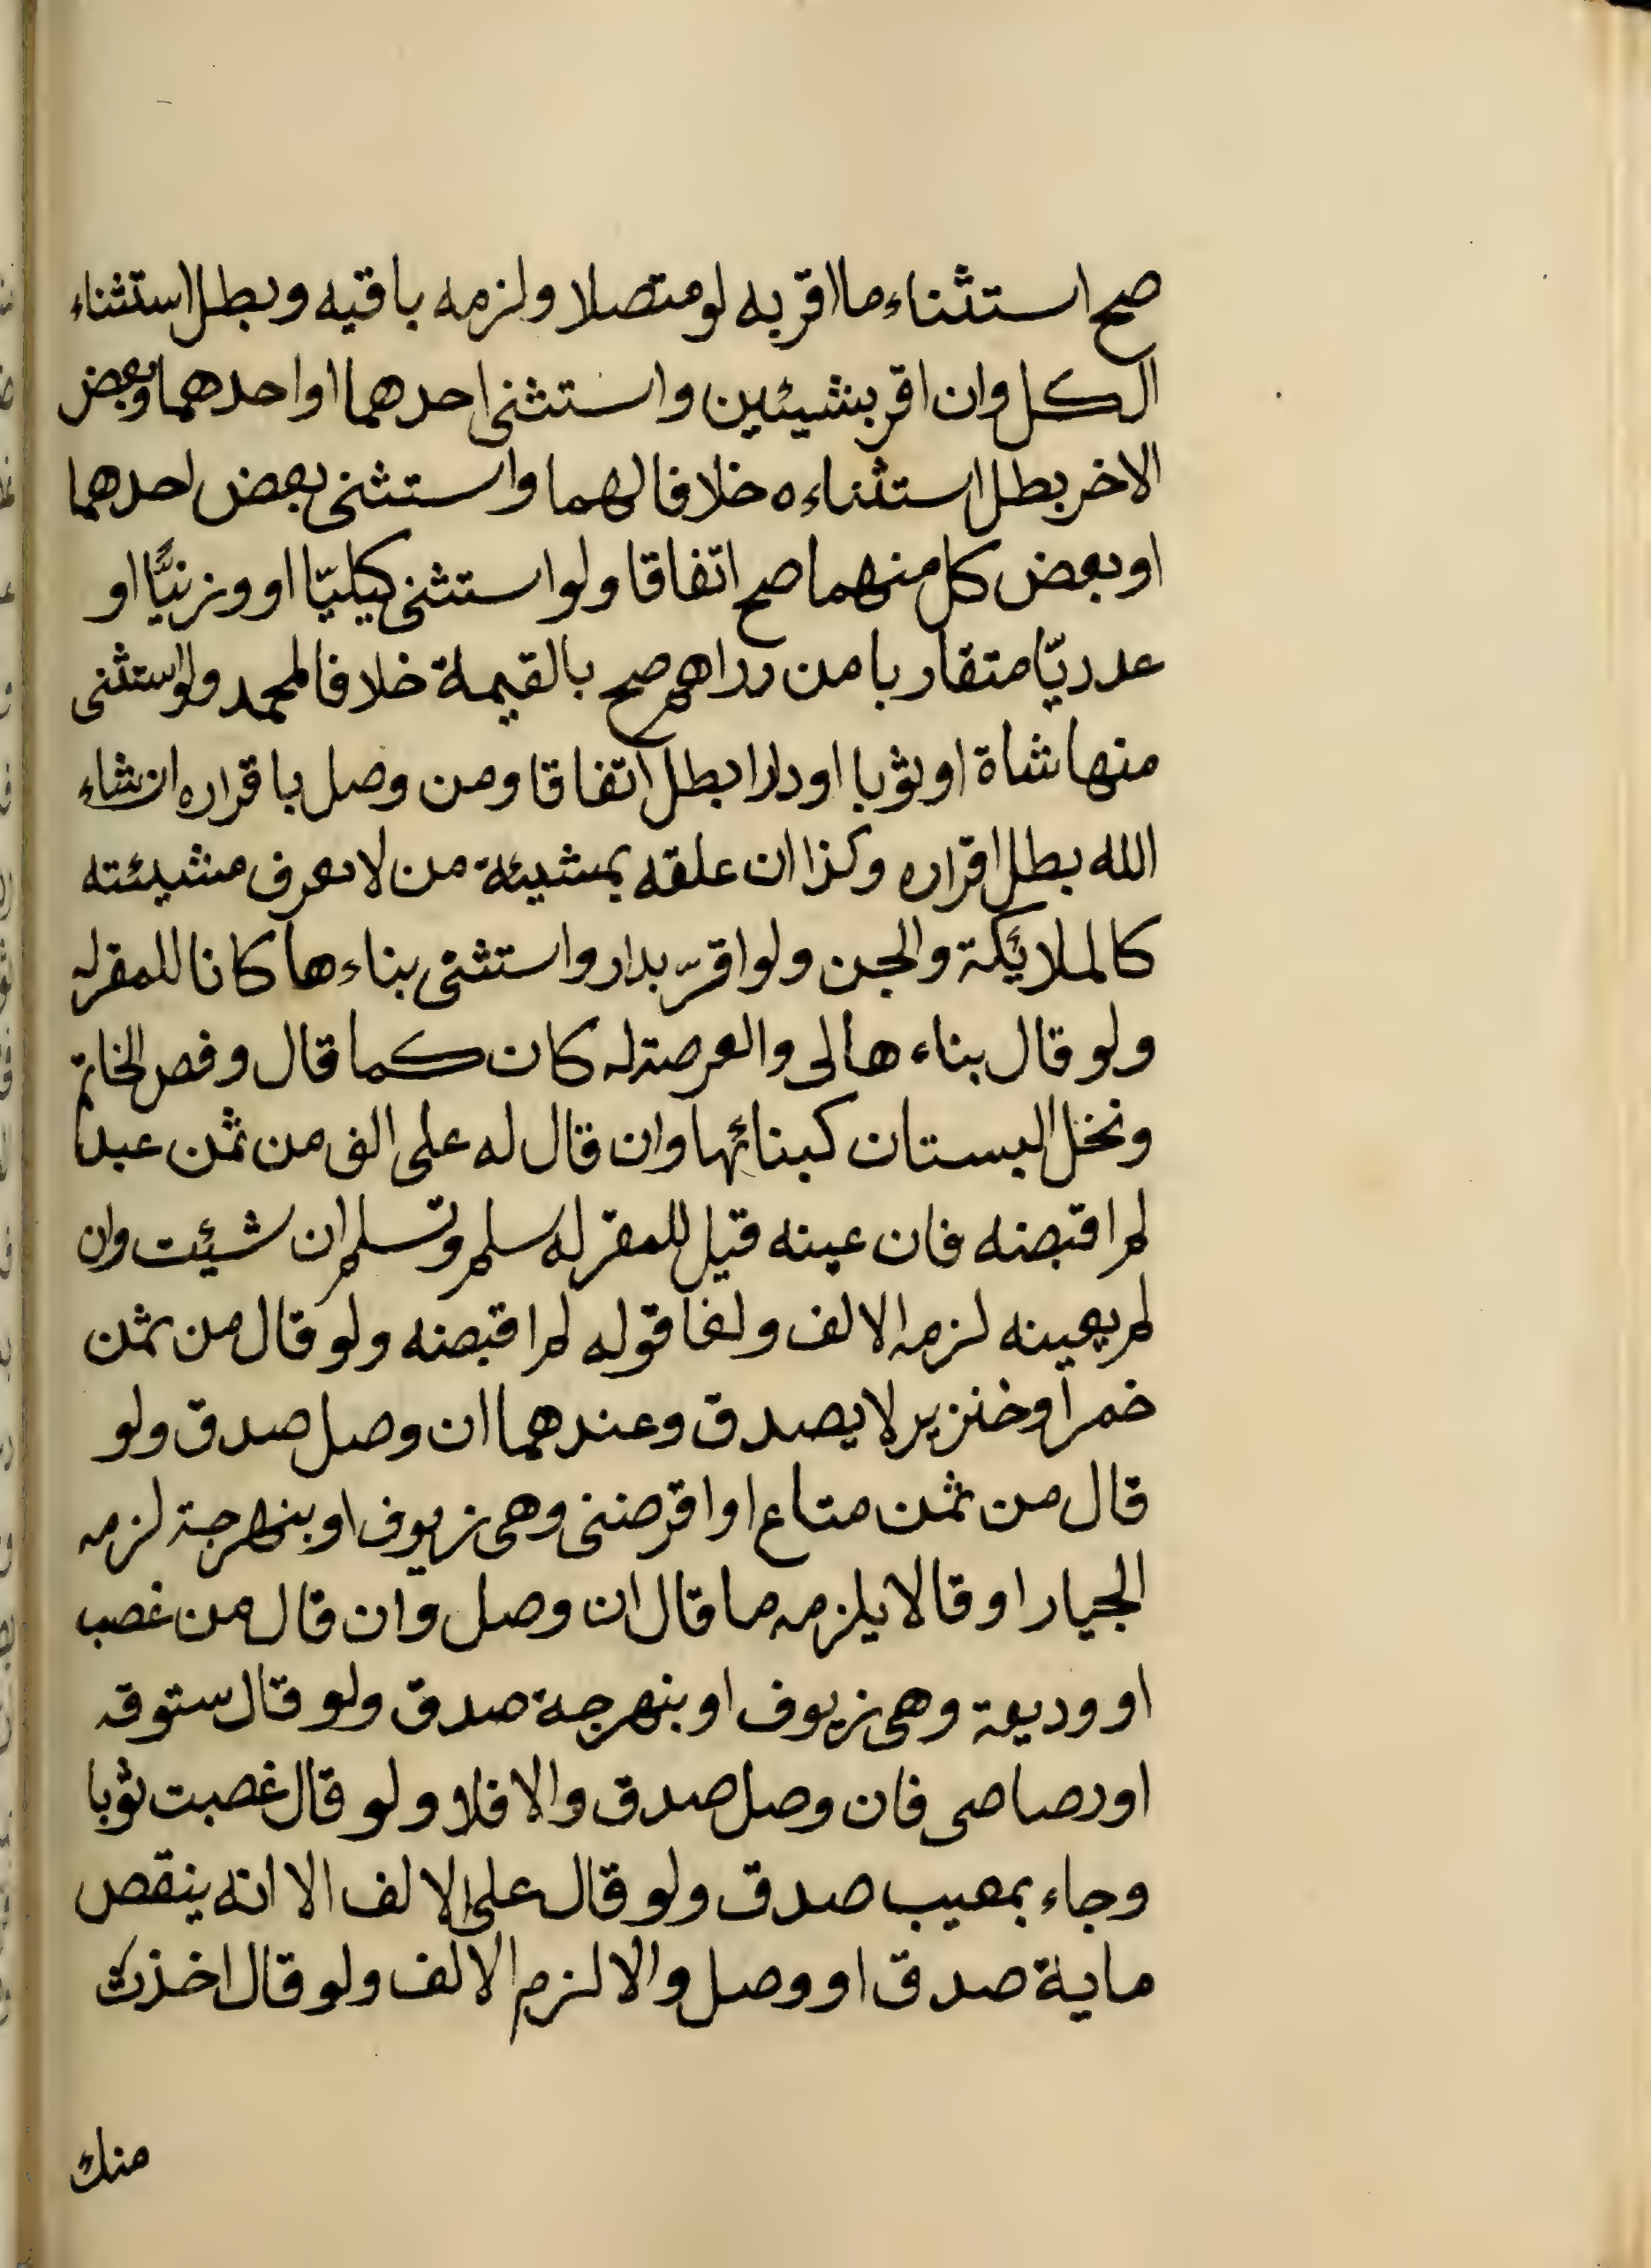 صح استثناء ما اقر به لو متصلا ولزمه باقيه وبطل استثناء
الكل وان اقر بشيئين واستثنى احدهما او احدهما وبعض
الاخر بطل استثناءه خلافا لهما واستثنى بعض احدهما
او بعض كل منهما صح اتفاقا ولو استثنى كيليّا او وزنيًّا او
عدديّا متقاربا من دراهم صح بالقيمة خلافا لمحمد ولو استثنى
منها شاة او ثوبا او دارا بطل اتفاقا ومن وصل باقراره ان شاء
الله بطل اقراره وكذا ان علقه بمشيئة من لا يعرف مشيئته
كالملائكة والجن ولو اقرّ بدار واستثنى بناءها كانا للمقر له
ولو قال بناءها لى والعرصة له كان كما قال وفص الخاتم
ونخل البستان كبنائها وان قال له على الف من ثمن عبد
لم اقبضه فان عينه قيل للمقر له سلم وتسلم ان شئت وان
لم يعينه لزمه الالف ولغا قوله لم اقبضه ولو قال من ثمن
خمر او خنزير لا يصدق وعندهما ان وصل صدق ولو
قال من ثمن متاع او اقرضنى وهى زيوف او بنهرجة لزمه
الجياد او قالا يلزمه ما قال ان وصل وان قال من غصب
او وديعة وهى زيوف او بنهرجة صدق ولو قال ستوقه
او رصاص فان وصل صدق والا فلا ولو قال غصبت ثوبا
وجاء بمعيب صدق ولو قال على الالف الا انه ينقص
ماية صدق او وصل والا لزم الالف ولو قال اخذت
منك